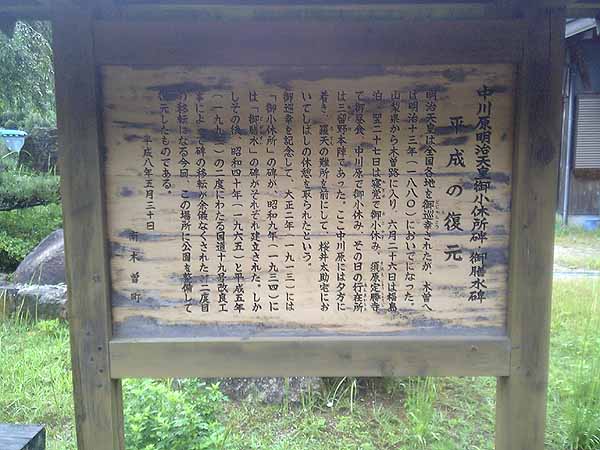 中川原明治天皇御小休所碑・御膳水碑
平成の復元
明治天皇は全国各地を御巡幸されたが、木曽へ
は明治十三年(一八八〇)においでになった。
山梨県から木曽路に入り、六月二十六日は福島
泊、翌二十七日は寝覚で御小休み、須原定勝寺
で御昼食、中川原で御小休み、その日の行在所
は三留野本陣であった。ここ中川原には夕方に
着き、羅天の難所を前にして、桜井太助宅にお
いてしばしの休憩を取られたという。
御巡幸を記念して、大正二年(一九一三)には
「御小休所」の碑が、昭和九年(一九三四)に
は「御膳水」の碑がそれぞれ建立された。しか
しその後、昭和四十年(一九六五)と平成五年
(一九九三)の二度にわたる国道十九号改良工
事によって碑の移転が余儀なくされた。二度目
の移転になる今回、この場所に公園を整備して
復元したものである。
平成八年五月三十日
南木曽町